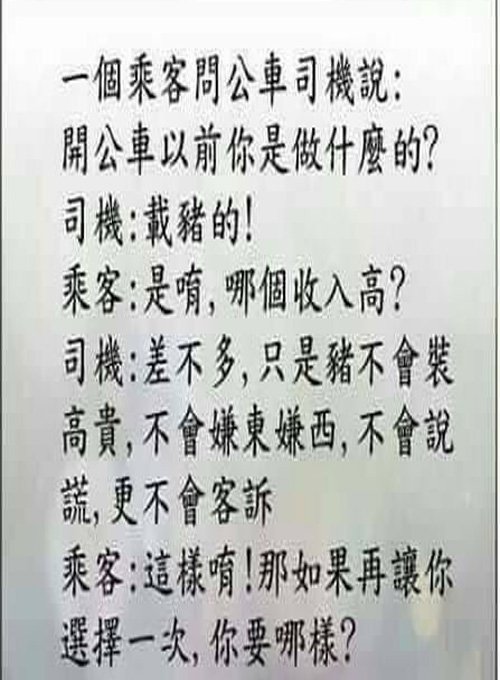 一個乘客問公車司機說:
開公車以前你是做什麼的?
司機:載豬的!
乘客:是唷,哪個收入高?
司機:差不多,只是豬不會裝
高貴,不會嫌東嫌西,不會說
謊,更不會客訴
乘客:這樣唷!那如果再讓你
選擇一次,你要哪樣?